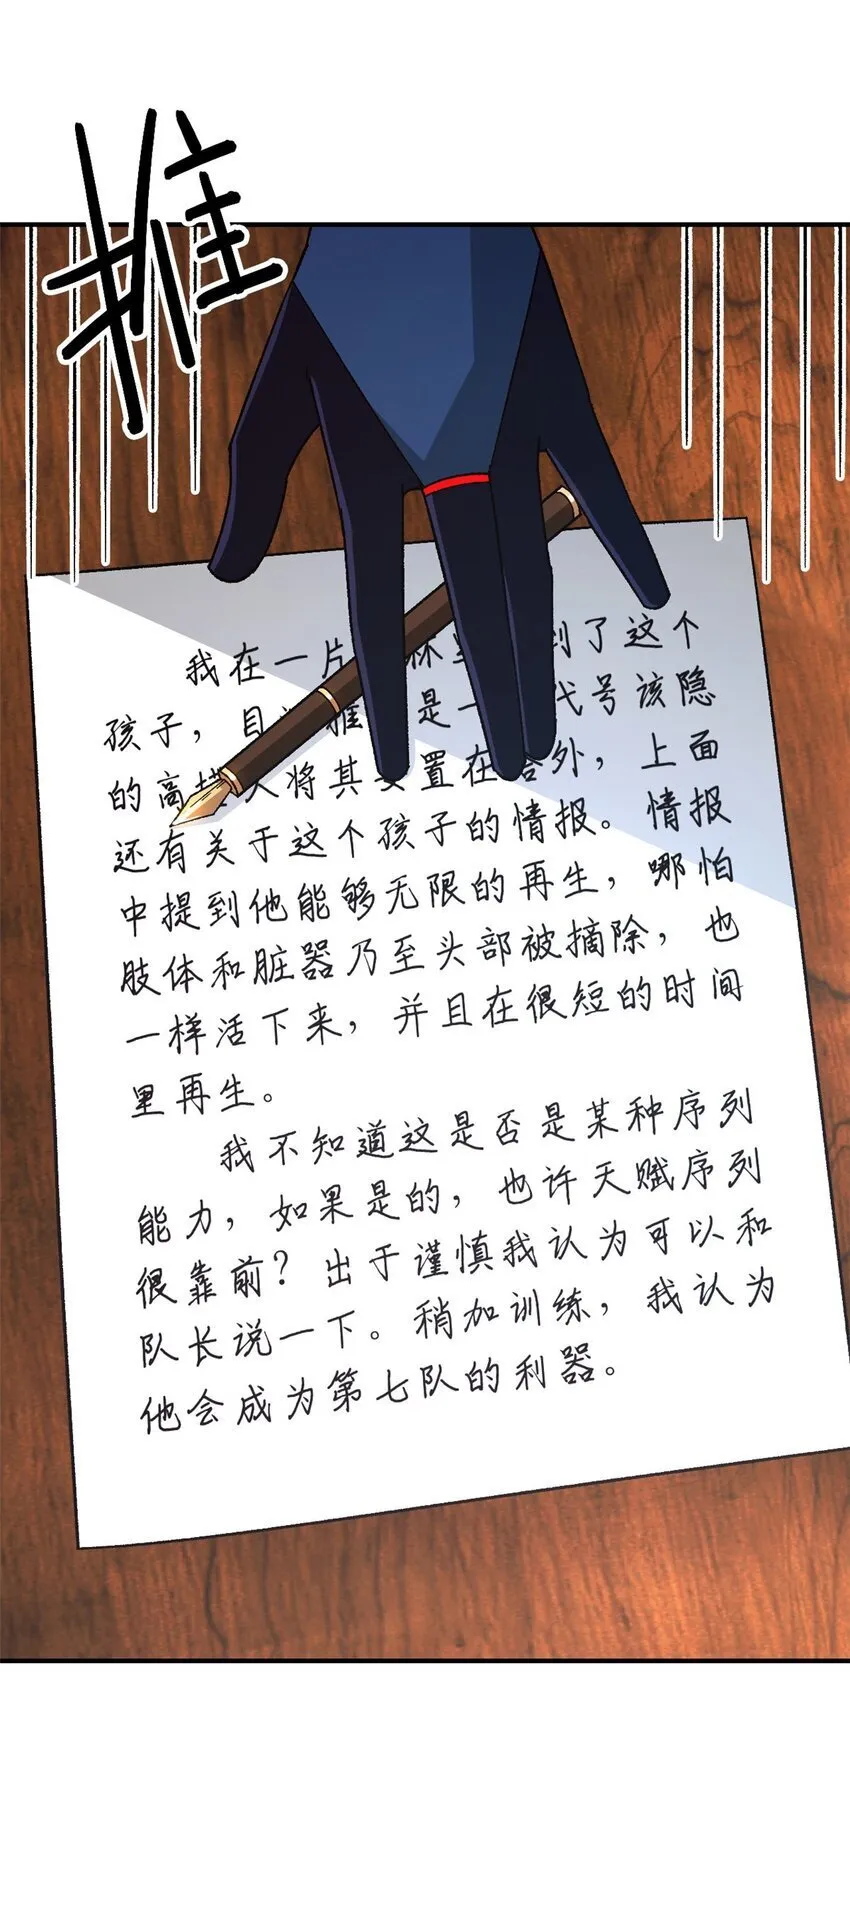 推
我在一片 林 到了这个
孩子，目 推 是一 代号该隐
的高 人将其安置在 外，上面
还有关于这个孩子的情报。情报
中提到他能够无限的再生，哪怕
肢体和脏器乃至头部被摘除，也
一样活下来，并且在很短的时间
里再生。
我不知道这是否是某种序列
能力，如果是的，也许天赋序列
很靠前？出于谨慎我认为可以和
队长说一下。稍加训练，我认为
他会成为第七队的利器。